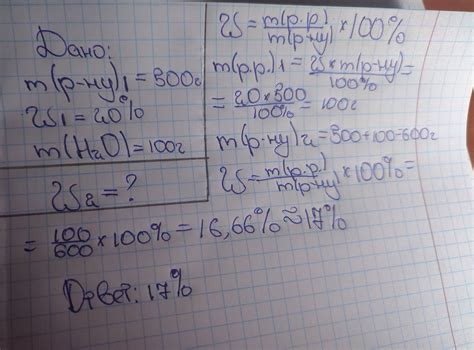 Дано:
m(р-ну)₁ = 500г
ω₁ = 20%
m(H₂O) = 100г
ω₂ = ?
ω = m(р.р) / m(р-ну) × 100%
m(р.р.)₁ = ω × m(р-ну) / 100% =
= 20 × 500 / 100% = 100г
m(р-ну)₂ = 500+100=600г
ω = m(р.р) / m(р-ну) × 100% =
= 100 / 600 × 100% = 16,66% ≈ 17%
Ответ: 17%